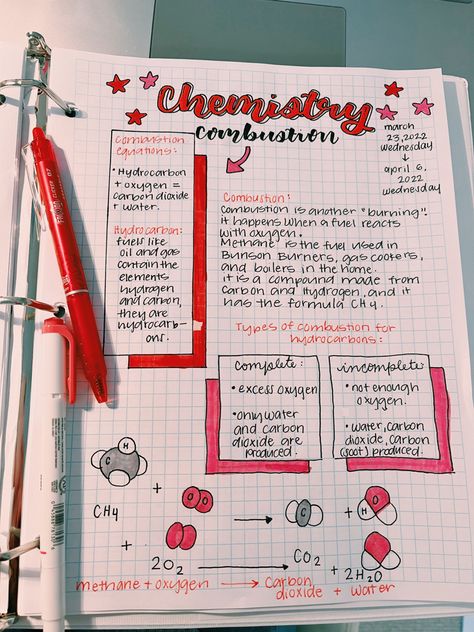 Chemistry
combustion
march
23, 2022
wednesday
april 6,
2022
wednesday
combustion
equations:
• Hydrocarbon
+ oxygen =
carbon dioxide
+ water.
Hydrocarbon:
fuels like
oil and gas
contain the
elements
hydrogen
and carbon,
they are
hydrocarb-
ons.
Combustion:
Combustion is another "burning".
it happens when a fuel reacts
with oxygen.
Methane is the fuel used in
Bunson Burners, gas cookers,
and boilers in the home.
it is a compound made from
carbon and Hydrogen, and it
has the formula CH4.
Types of combustion for
hydrocarbons:
complete:
• excess oxygen
• only water
and carbon
dioxide are
produced.
incomplete:
• not enough
oxygen.
• water, carbon
dioxide, carbon
(soot) produced.
H
C
O O
C
H O
CH4
+
+
+
+
2O2
CO2
+ 2H2O
methane + oxygen → carbon
dioxide + water